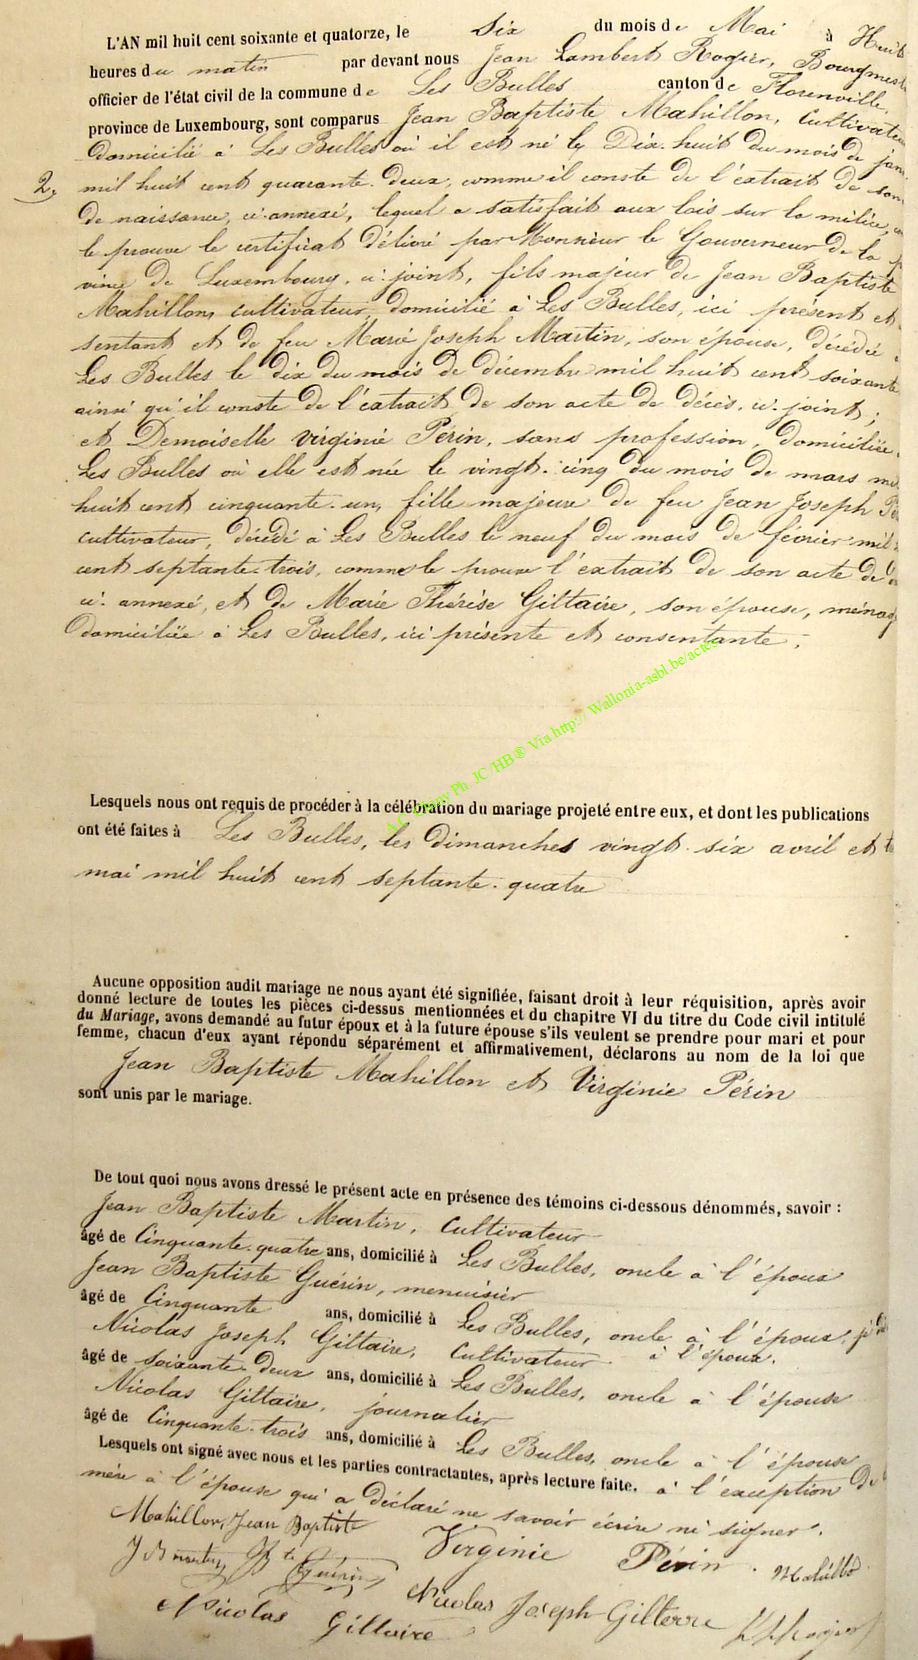 L'AN mil huit cent soixante et quatorze, le Six du mois de Mai à Huit
heures du matin par devant nous Jean Lambert Rogier, Bourgmest
officier de l'état civil de la commune de Les Bulles canton de Florenville,
province de Luxembourg, sont comparus Jean Baptiste Mahillon, Cultivateu
domicilié à Les Bulles où il est né le Dix-huit du mois de janv
2. mil huit cent quarante-deux, comme il conste de l'extrait de son
de naissance, ci-annexé, lequel a satisfait aux lois sur la milice,
le prouve le certificat délivré par Monsieur le Gouverneur de la p
vince de Luxembourg, ci-joint, fils majeur de Jean Baptiste
Mahillon, cultivateur, domicilié à Les Bulles, ici présent et
sentant et de feu Marie Joseph Martin, son épouse, décédée
Les Bulles le dix du mois de décembre mil huit cent soixante
ainsi qu'il conste de l'extrait de son acte de décès, ci-joint;
et Demoiselle Virginie Périn, sans profession, domiciliée
Les Bulles où elle est née le vingt-cinq du mois de mars m
huit cent cinquante-un, fille majeure de feu Jean Joseph Pé
cultivateur, décédé à Les Bulles le neuf du mois de février mil
cent septante-trois, comme le prouve l'extrait de son acte de d
ci-annexé, et de Marie Thérèse Giltaire, son épouse, ménag
domiciliée à Les Bulles, ici présente et consentante;
Via http://Wallonia-asbl.be/actes
Lesquels nous ont requis de procéder à la célébration du mariage projeté entre eux, et dont les publications
ont été faites à Les Bulles, les dimanches vingt-six avril et t
mai mil huit cent septante-quatre
Aucune opposition audit mariage ne nous ayant été signifiée, faisant droit à leur réquisition, après avoir
donné lecture de toutes les pièces ci-dessus mentionnées et du chapitre VI du titre du Code civil intitulé
du Mariage, avons demandé au futur époux et à la future épouse s'ils veulent se prendre pour mari et pour
femme, chacun d'eux ayant répondu séparément et affirmativement, déclarons au nom de la loi que
Jean Baptiste Mahillon et Virginie Périn
sont unis par le mariage.
De tout quoi nous avons dressé le présent acte en présence des témoins ci-dessous dénommés, savoir :
Jean Baptiste Martin, Cultivateur
âgé de Cinquante-quatre ans, domicilié à Les Bulles, oncle à l'époux
Jean Baptiste Guérin, menuisier
âgé de Cinquante ans, domicilié à Les Bulles, oncle à l'époux,
Nicolas Joseph Giltaire, Cultivateur à l'époux.
âgé de soixante-deux ans, domicilié à Les Bulles, oncle à l'épouse
Nicolas Giltaire, journalier
âgé de Cinquante-trois ans, domicilié à Les Bulles, oncle à l'épouse
Lesquels ont signé avec nous et les parties contractantes, après lecture faite. à l'exception de
mère à l'épouse qui a déclaré ne savoir écrire ni signer.
Mahillon, Jean Baptiste Virginie Périn. Mahillo
Guérin
Nicolas Joseph Gilterre
Nicolas Giltaire